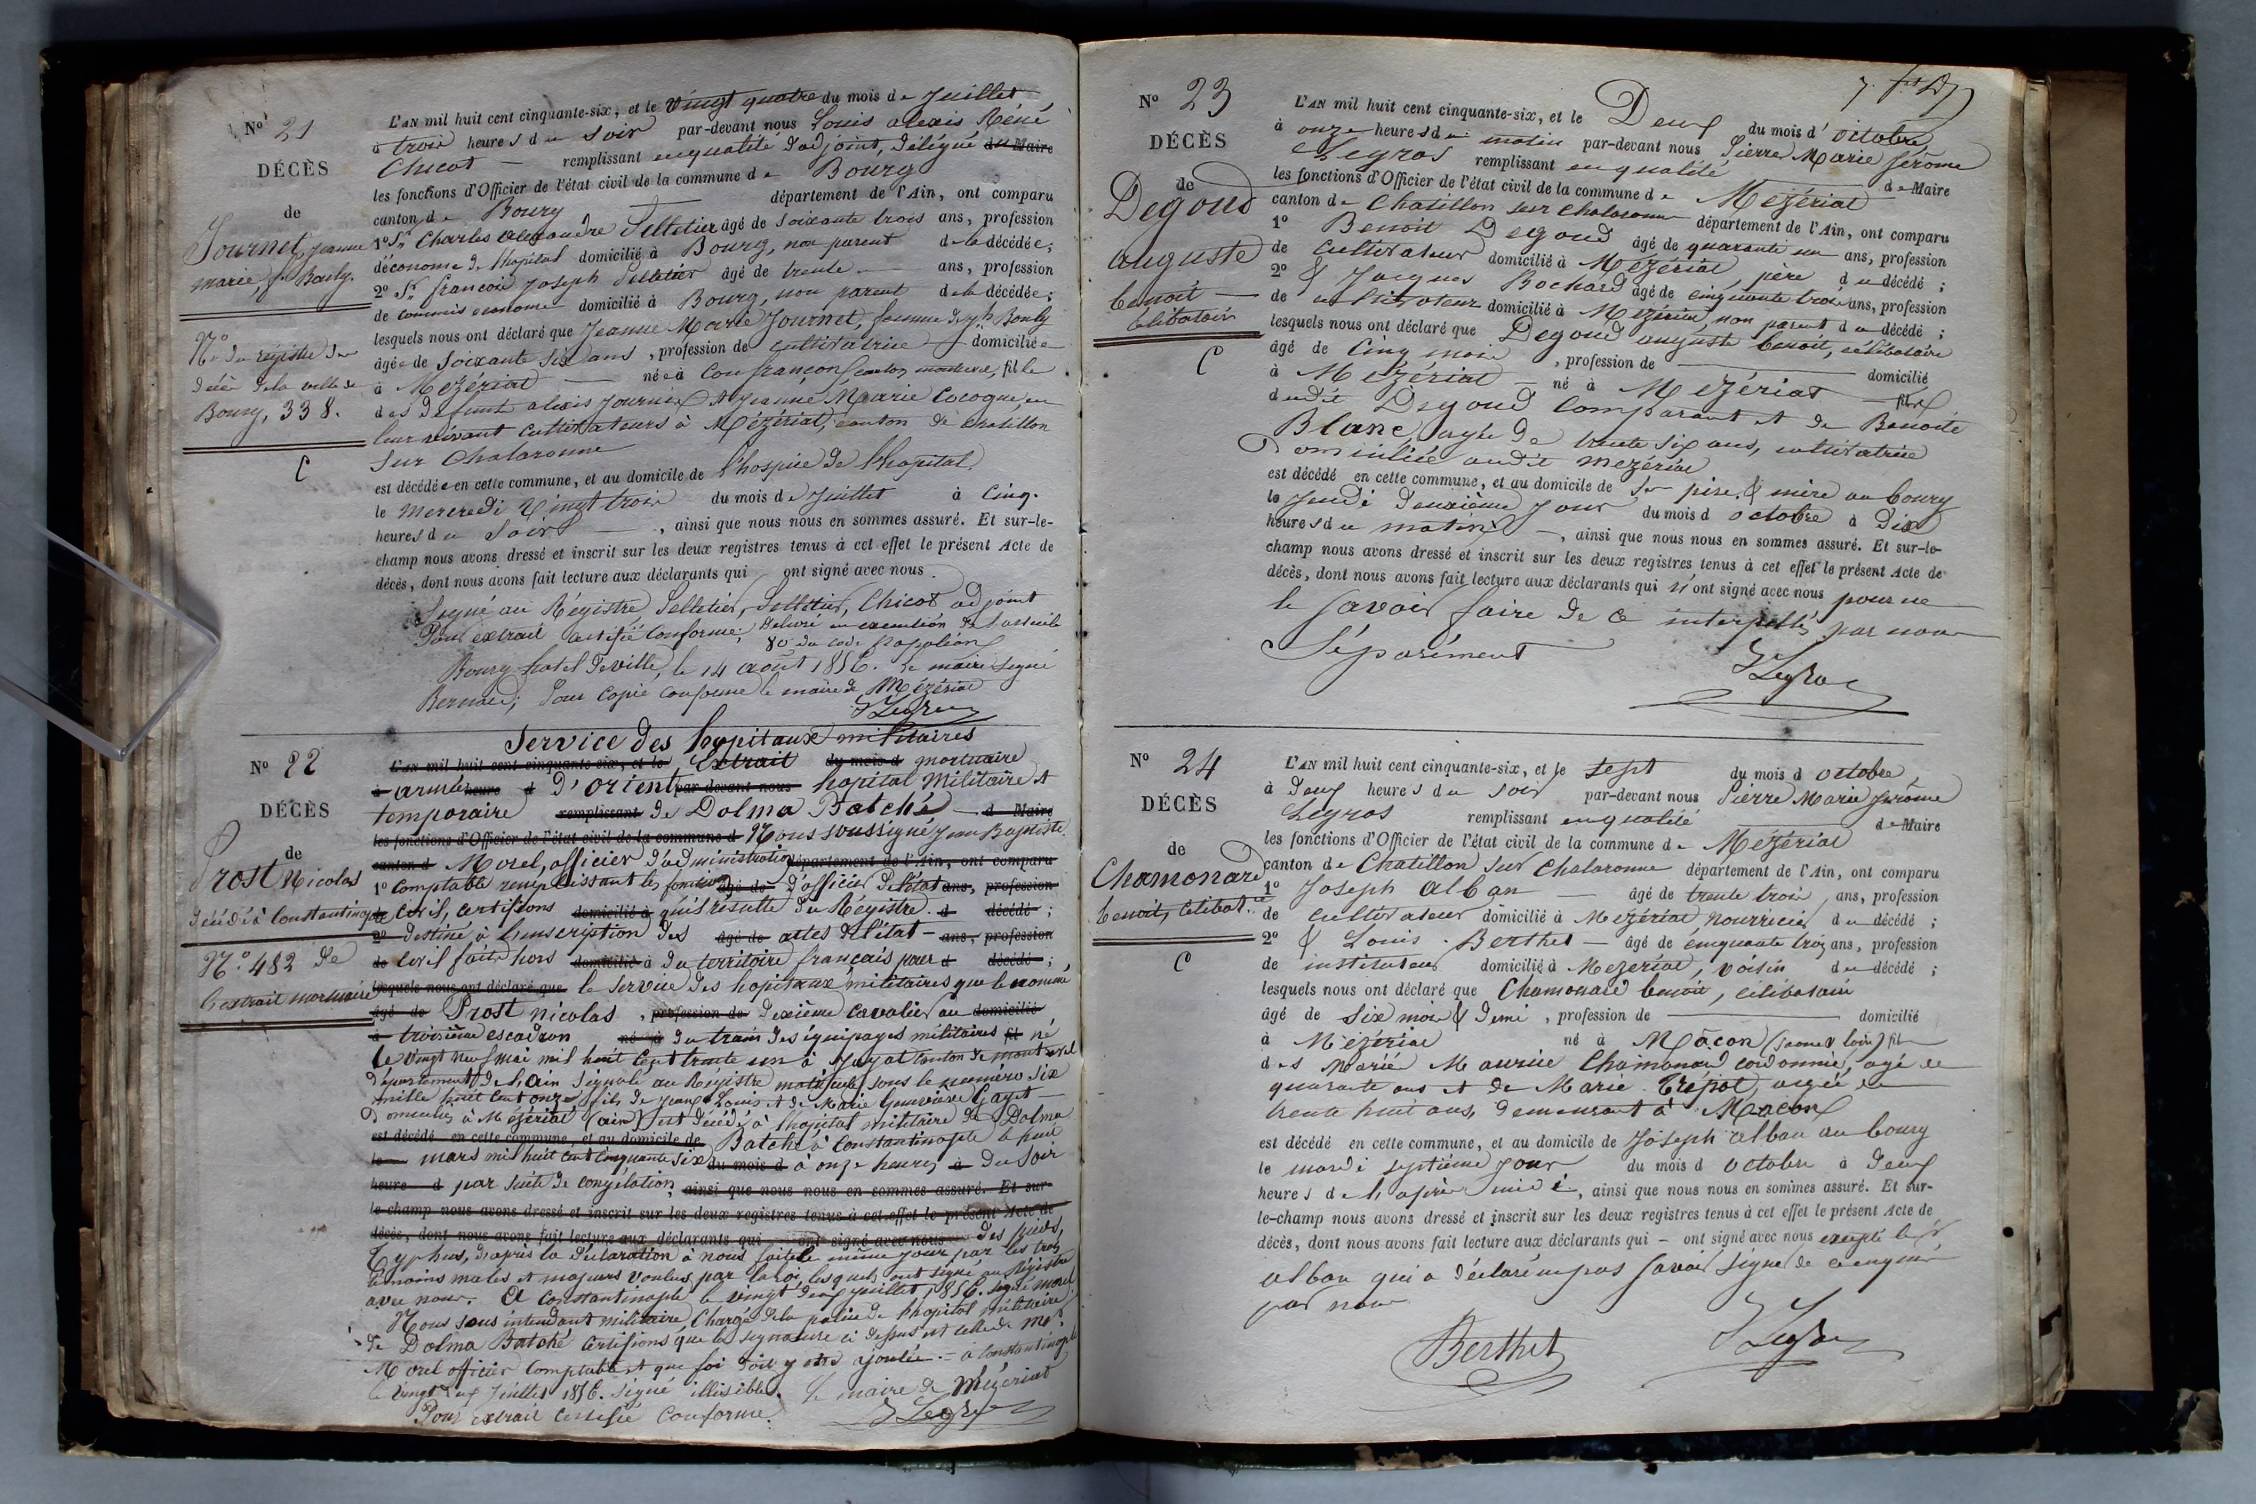 No 21
DÉCÈS
de
Journet, Jeanne
marie, fe Bouly.
No du régistre des
décès de la ville de
Bourg, 338.
C
L'AN mil huit cent cinquante-six, et le vingt quatre du mois de Juillet
à trois heures du soir par-devant nous Louis alexis Réné
Chicot — remplissant en qualité d'adjoint, délégué du Maire
les fonctions d'Officier de l'état civil de la commune de Bourg
canton de Bourg — département de l'Ain, ont comparu
1° Sr Charles alexandre Pelletier âgé de soixante trois ans, profession
d'économe de l'hopital domicilié à Bourg, non parent de la décédée;
2° Sr francois Joseph Pelletier âgé de trente — ans, profession
de commis econome domicilié à Bourg, non parent de la décédée;
lesquels nous ont déclaré que Jeanne Marie Journet, femme de jh Bouly
âgée de soixante six ans, profession de cultivatrice domiciliée
à Mézériat — née à Confrançon (canton montrevel), fille
des défunts alexis Journet et Jeanne Marie Cocogne, en
leur vivant cultivateurs à Mézériat, canton de chatillon
sur Chalaronne
est décédée en cette commune, et au domicile de l'hospice de l'hopital
le mercredi vingt trois du mois de Juillet à cinq
heures du soir —, ainsi que nous nous en sommes assuré. Et sur-le-
champ nous avons dressé et inscrit sur les deux registres tenus à cet effet le présent Acte de
décès, dont nous avons fait lecture aux déclarants qui ont signé avec nous.
Signé au Régistre Pelletier, Pelletier, Chicot adjoint
Pour extrait certifié conforme; délivré en execution de l'article
80 du code Napoléon
Bourg hotel de ville, le 14 août 1856. Le maire signé
Bernard; Pour copie conforme le maire de Mézériat
J Legros
No 22
DÉCÈS
de
Prost Nicolas
décédé à Constantinople
No 482 de
l'extrait mortuaire
Service des hopitaux militaires
L'AN mil huit cent cinquante-six, et le Extrait du mois d mortuaire
à armée heure d d'orient par-devant nous hopital Militaire et
temporaire remplissant de Dolma Batché — d Maire
les fonctions d'Officier de l'état civil de la commune d Nous soussigné Jean Baptiste
canton d Morel, officier d'administration département de l'Ain, ont comparu
1° comptable remplissant les fonctions âgé de d'officier de l'état ans, profession
de civil, certifions domicilié à qu'il résulte du Régistre d décédé;
2° destiné à l'inscription des âgé de actes de l'état — ans, profession
de civil faits hors domicilié à du territoire français pour d décédé;
lesquels nous ont déclaré que le service des hopitaux militaires que le nommé
âgé de Prost nicolas, profession de deuxième cavalier au domicilié
à troisième escadron né à du train des équipages militaires fil né
le vingt neuf mai mil huit cent trente un à Jayat canton de montrevel
département de l'ain signalé au Régistre matricule sous le numéro six
mille huit cent onze fils de Jean Louis et de Marie Genevieve Gayet —
domiciliés à Mézériat (ain) est décédé à l'hopital militaire de Dolma
est décédé en cette commune, et au domicile de Batché à Constantinople le huit
le mars mil huit cent cinquante six du mois d à onze heures à du soir
heure d par suite de congélation, ainsi que nous nous en sommes assuré. Et sur-
le-champ nous avons dressé et inscrit sur les deux registres tenus à cet effet le présent Acte de
décès, dont nous avons fait lecture aux déclarants qui ont signé avec nous des pieds,
Typhus, d'après la déclaration à nous faite le même jour par les trois
témoins males et majeurs voulus par la loi, lesquels ont signé au Régistre
avec nous. A constantinople le vingt deux juillet 1856. signé morel
Nous sous intendant militaire, chargé de la police de l'hopital militaire
de Dolma Batché certifions que la signature ci dessus est celle de Mr
Morel officier comptable et que foi doit y etre ajoutée. — à Constantinople
le vingt deux Juillet 1856. signé illisible. Le maire de Mézériat
Pour extrait certifié conforme. J Legros
7. 
No 23
DÉCÈS
de
Degoud
auguste
benoit —
Célibatair
C
L'AN mil huit cent cinquante-six, et le Deux du mois d'octobre
à onze heures du matin par-devant nous Pierre Marie Jérôme
Legros remplissant en qualité de Maire
les fonctions d'Officier de l'état civil de la commune de Mézériat
canton de Chatillon sur chalaronne département de l'Ain, ont comparu
1° Benoit Degoud âgé de quarante un ans, profession
de cultivateur domicilié à Mézériat, père du décédé;
2° & Jacques Bochard âgé de cinquante trois ans, profession
de cultivateur domicilié à Mézériat, non parent du décédé;
lesquels nous ont déclaré que Degoud auguste benoit, célibataire
âgé de cinq mois, profession de — domicilié
à Mézériat — né à Mezériat — fils
dudit Degoud comparant et de Benoite
Blanc, agée de trente six ans, cultivatrice
Domiciliée audit Mezériat
est décédé en cette commune, et au domicile de ses père & mère au bourg
le Jeudi deuxième jour du mois d octobre à dix
heures du matin —, ainsi que nous nous en sommes assuré. Et sur-le-
champ nous avons dressé et inscrit sur les deux registres tenus à cet effet le présent Acte de
décès, dont nous avons fait lecture aux déclarants qui n'ont signé avec nous pour ne
le savoir faire de ce interpellés par nous
Séparément
J Legros
No 24
DÉCÈS
de
Chamonard
benoit, célibatre
C
L'AN mil huit cent cinquante-six, et le sept du mois d octobre,
à deux heures du soir par-devant nous Pierre Marie Jerôme
Legros remplissant en qualité de Maire
les fonctions d'Officier de l'état civil de la commune de Mézériat
canton de Chatillon sur Chalaronne département de l'Ain, ont comparu
1° Joseph alban — âgé de trente trois ans, profession
de cultivateur domicilié à Mezériat, nourricier du décédé;
2° & Louis Berthet — âgé de cinquante trois ans, profession
de instituteur domicilié à Mezeriat, voisin du décédé;
lesquels nous ont déclaré que Chamonard benoit, célibataire
âgé de six mois & demi, profession de — domicilié
à Mézériat né à Macon (saone & loire) fils
des mariés Maurice Chamonard cordonnier, agé de
quarante ans et de Marie Trepot, agée de
trente huit ans, demeurant à Macon
est décédé en cette commune, et au domicile de Joseph alban au bourg
le mardi septième jour du mois d octobre à deux
heures de l'après midi, ainsi que nous nous en sommes assuré. Et sur-
le-champ nous avons dressé et inscrit sur les deux registres tenus à cet effet le présent Acte de
décès, dont nous avons fait lecture aux déclarants qui — ont signé avec nous excepté le sr
alban qui a déclaré ne pas savoir signer de ce enquis
par nous
Berthet J Legros